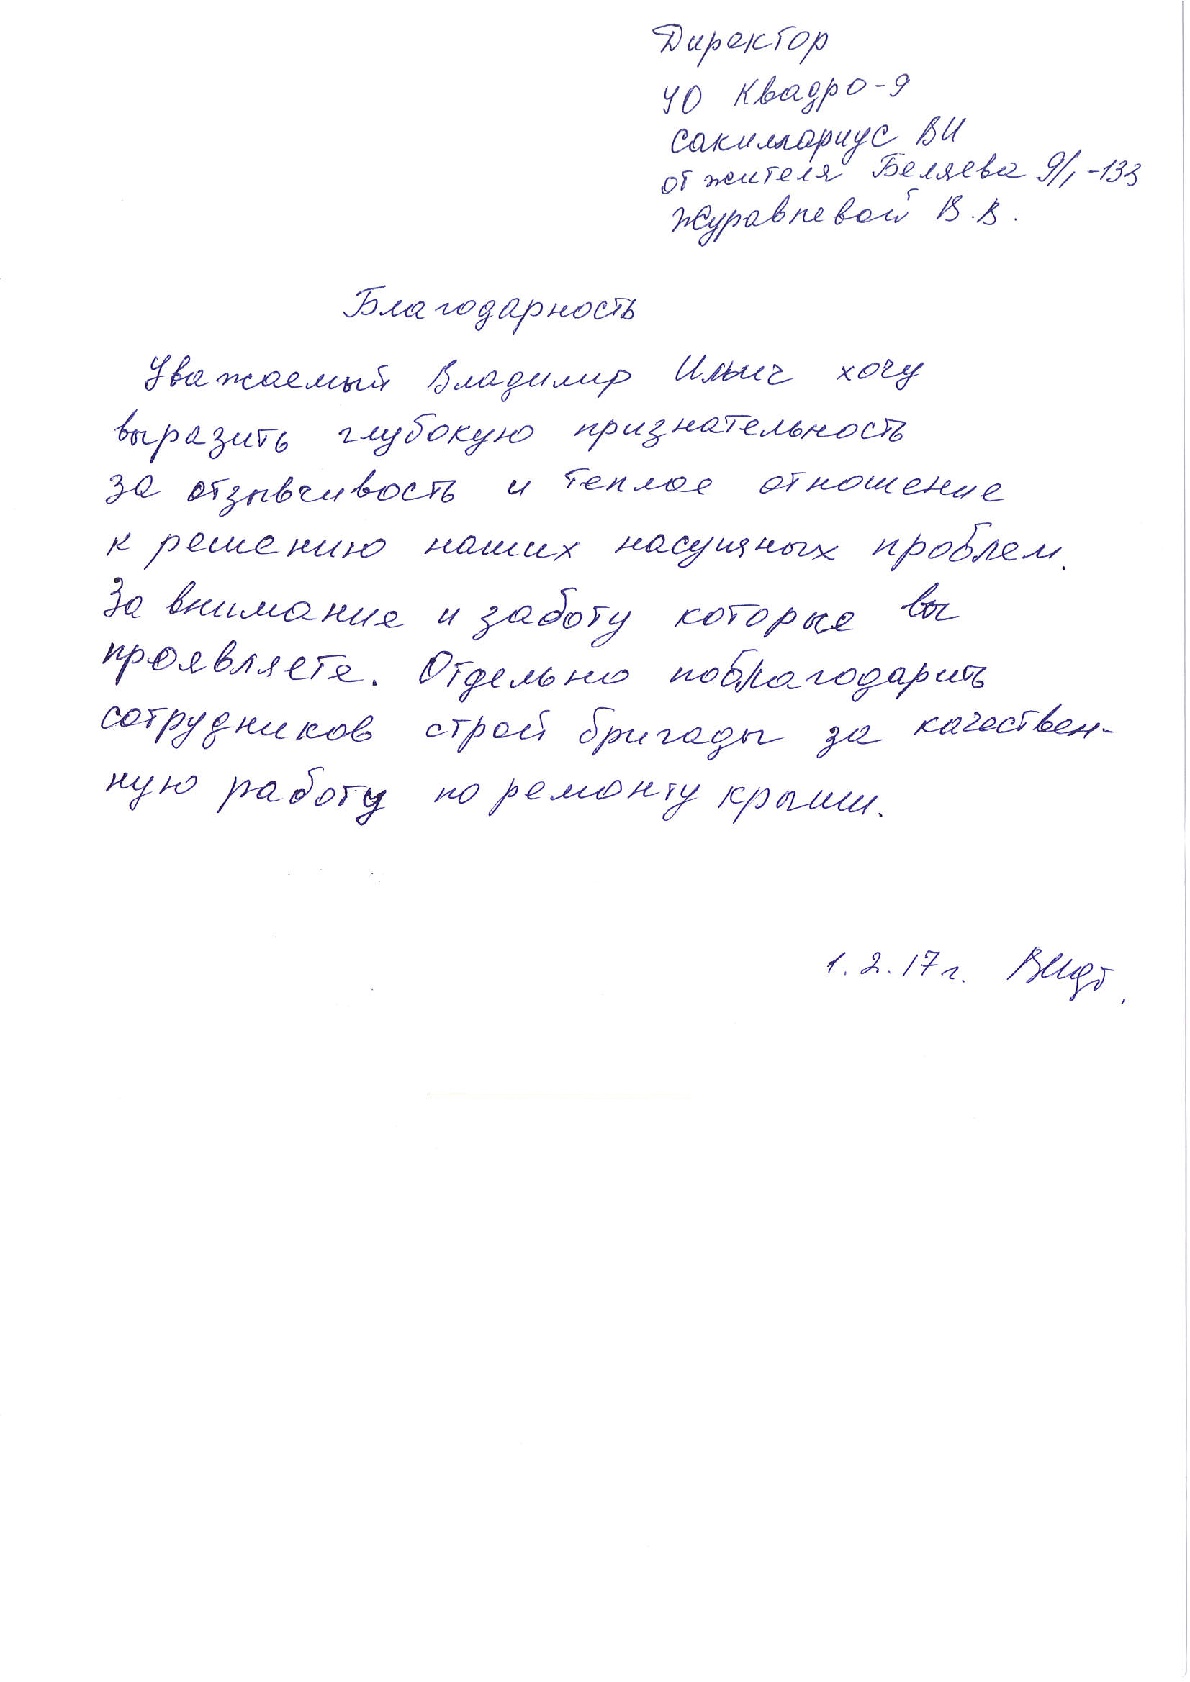 Директор
УО Квадро-9
Сакиллариус ВИ
от жителя Беляева 9/1-133
Журавлевой В.В.
Благодарность
Уважаемый Владимир Ильич хочу
выразить глубокую признательность
за отзывчивость и теплое отношение
к решению наших насущных проблем.
За внимание и заботу которые вы
проявляете. Отдельно поблагодарить
сотрудников строй бригады за качествен-
ную работу по ремонту крыши.
1.2.17г.